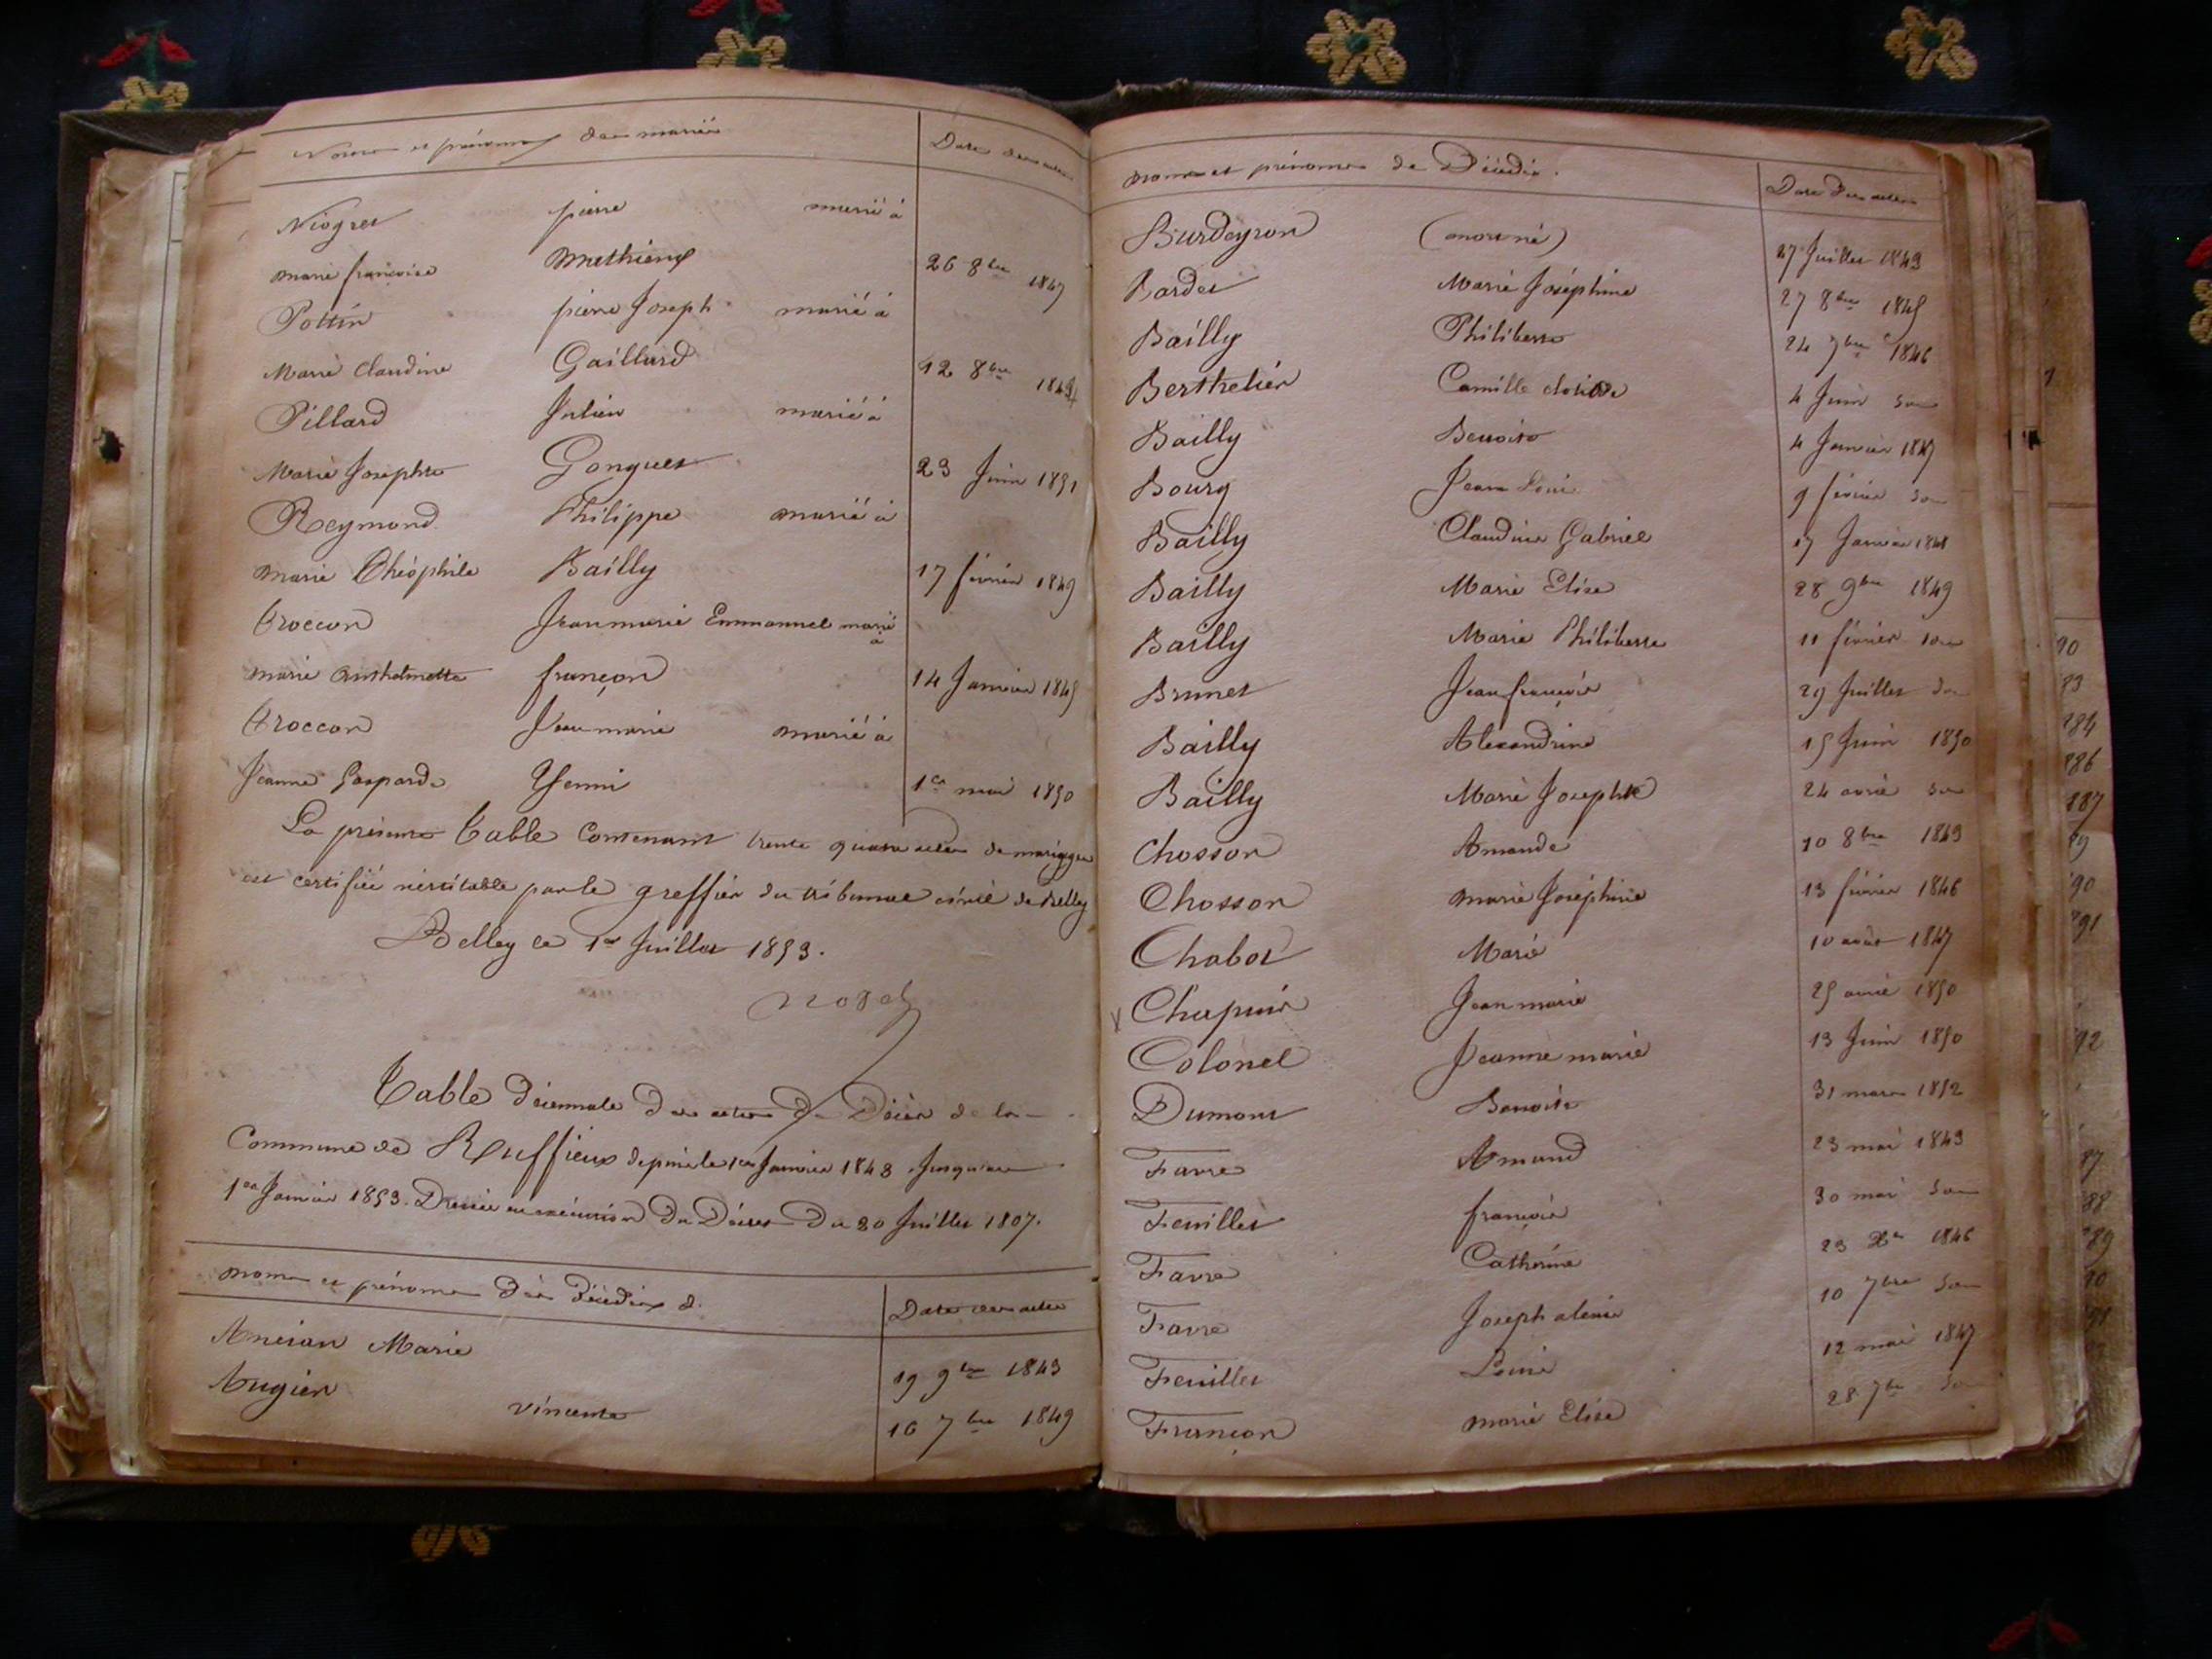 Noms et prénoms des mariés Date des actes
Niogret pierre marié à
marie françoise Mathieux 26 8bre 1847
Pottin pierre Joseph marié à
Marie Claudine Gaillard 12 8bre
Pillard Julien marié à
Marie Josephte Gonguet 23 Juin 1851
Reymond Philippe marié à
Marie Théophile Bailly 17 février 1849
Troccon Jean marie Emmanuel marié à
marie Anthelmette françon 14 Janvier 1845
Troccon Jean marie marié à
Jeanne Gasparde 1er mai 1850
La présente Table Contenant trente quatre actes de mariages
est certifiée véritable par le greffier du tribunal civil de Belley
Belley le 1er Juillet 1853.
Table décennale des actes de Décès de la
Commune de Ruffieux depuis le 1er Janvier 1843 Jusqu'au
1er Janvier 1853. Dressée en exécution du Décret du 20 Juillet 1807.
noms et prénoms des décédés Date des actes
Ancian Marie 19 9bre 1843
Augier vincent 16 7bre 1849
noms et prénoms de Décédés. Date des actes
Burdeyron (mort né) 27 Juillet 1843
Bardet Marie Joséphine 27 8bre 1845
Bailly Philiberte 24 7bre 1846
Berthelier Camille 4 Juin dom
Bailly Benoite 4 Janvier 1847
Bourg Jean Louis 9 février dom
Bailly Claudine Gabriel 17 Janvier 1848
Bailly Marie Elise 28 9bre 1849
Bailly Marie Philiberte 11 février dom
Brunet Jean françois 29 Juillet dom
Bailly Alexandrine 15 Juin 1850
Bailly Marie Josephte 24 avril dom
Chosson Amande 10 8bre 1843
Chosson marie Joséphine 13 février 1846
Chabot Marie 10 août 1847
Chapuis Jean marie 25 avril 1850
Colonel Jeanne marie 13 Juin 1850
Dumont Benoite 31 mars 1852
Favre Armand 23 mai 1843
Feuillet françois 30 mai dom
Favre Catherine 23 Xbre 1846
Favre Joseph alexis 10 7bre dom
Feuillet Louis 12 mai 1847
Françon marie Elise 28 7bre dom
90
83
284
286
287
90
91
92
87
88
289
90
91